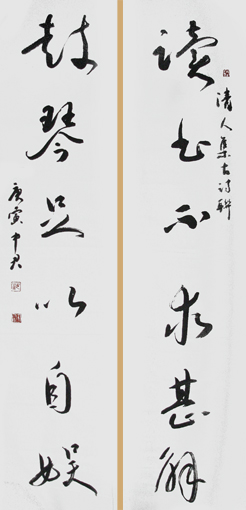 讀書不求甚解
清人集古詩聯
鼓琴足以自娱
庚寅中君